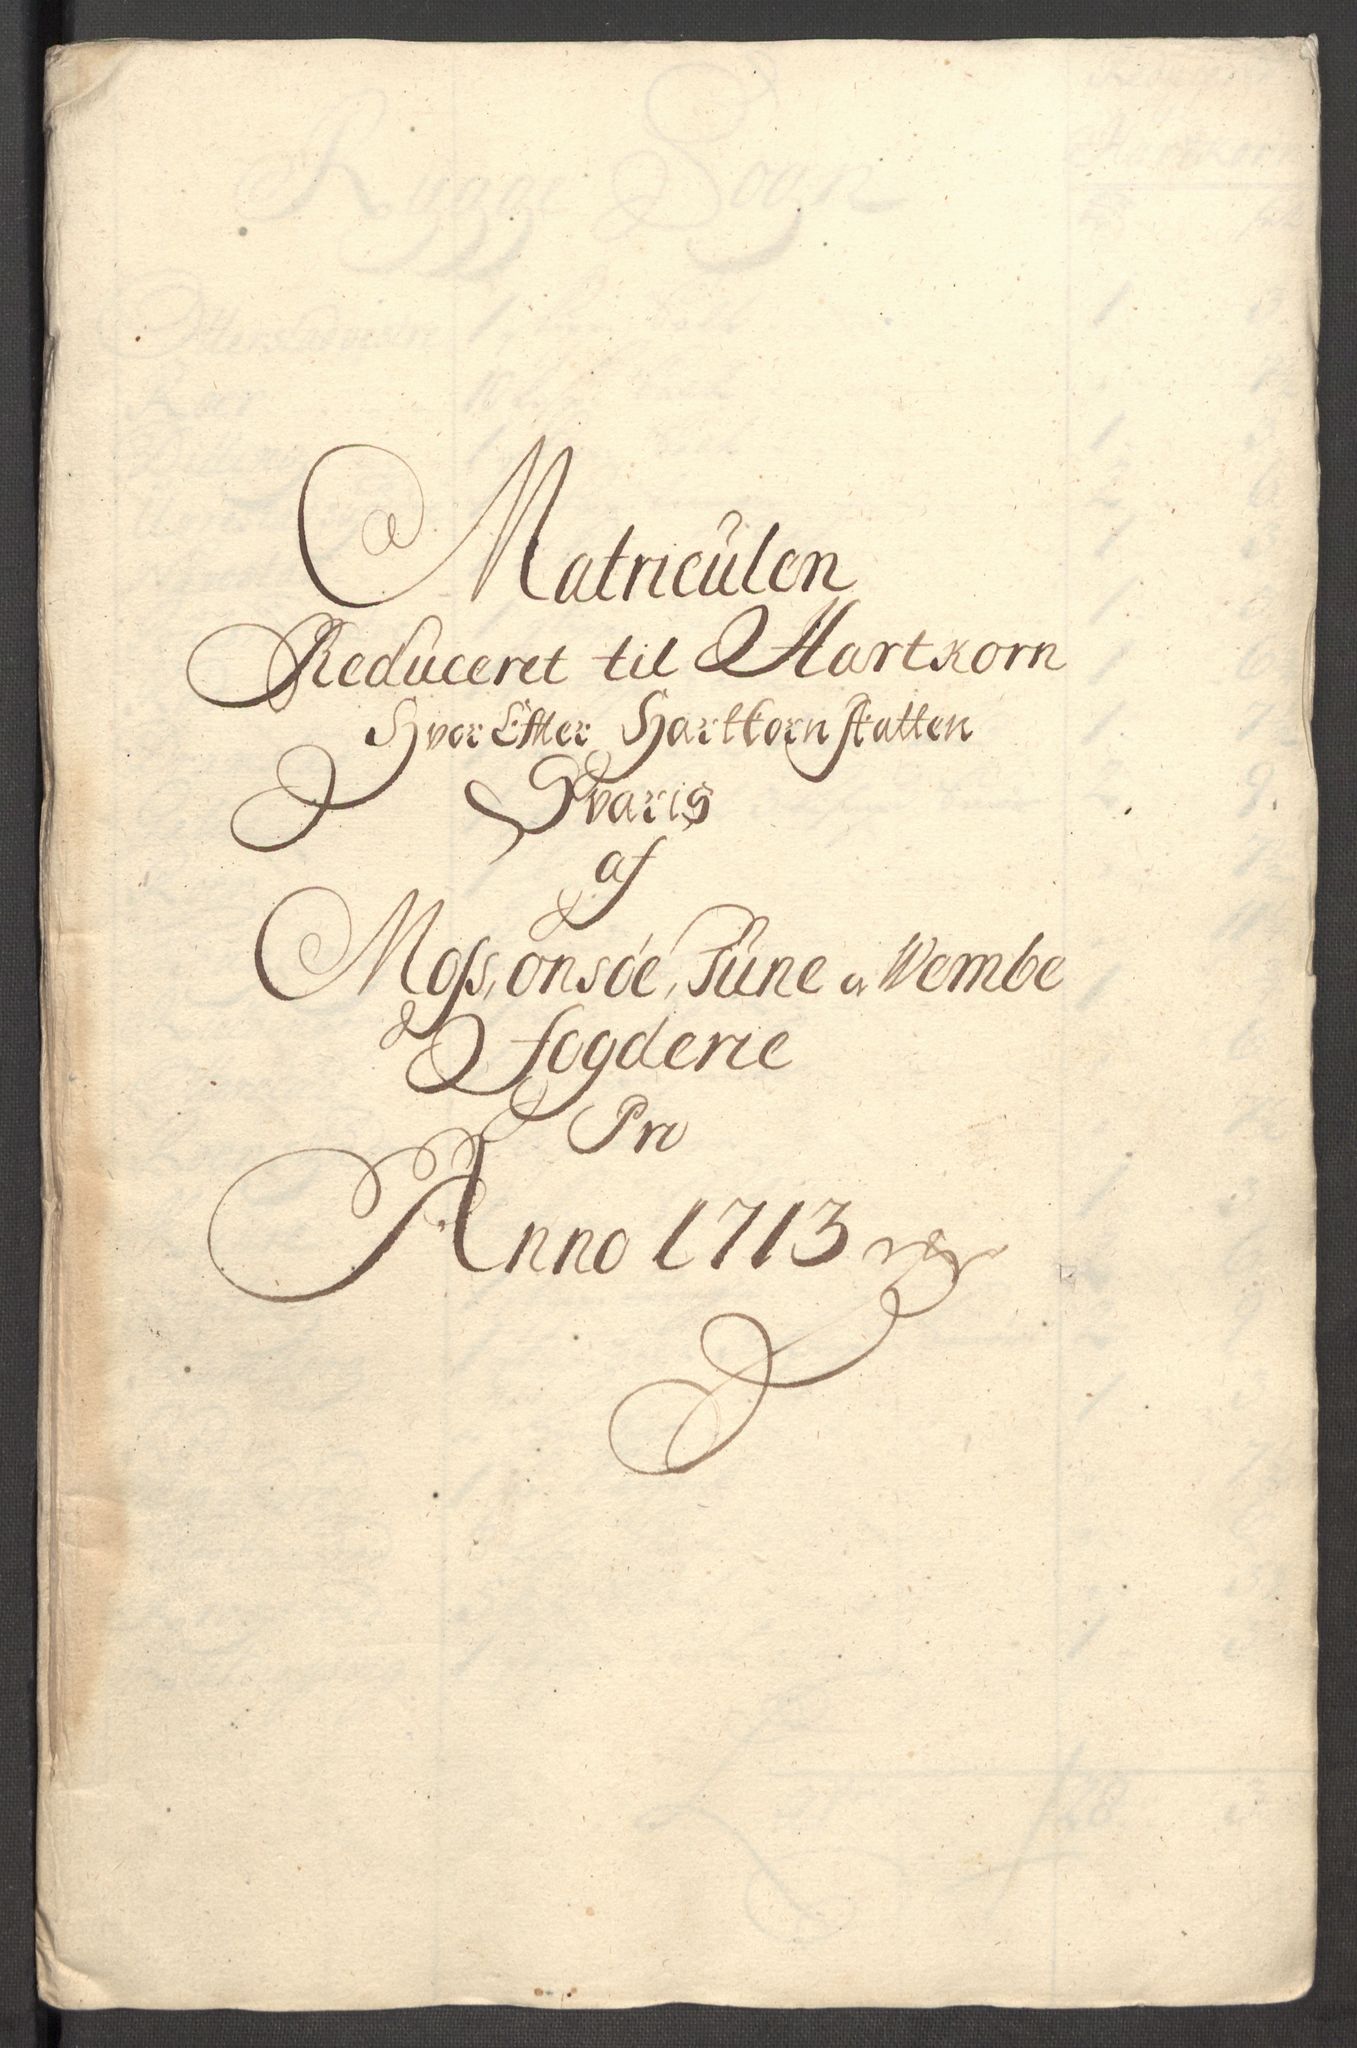 Matriculen
Reduceret til Hartkorn
Hvor Efter Hartkorn skatten
Svaris
af
Moss, onsöe, Tune u Wembe
fogderie
Pro
Anno 1713